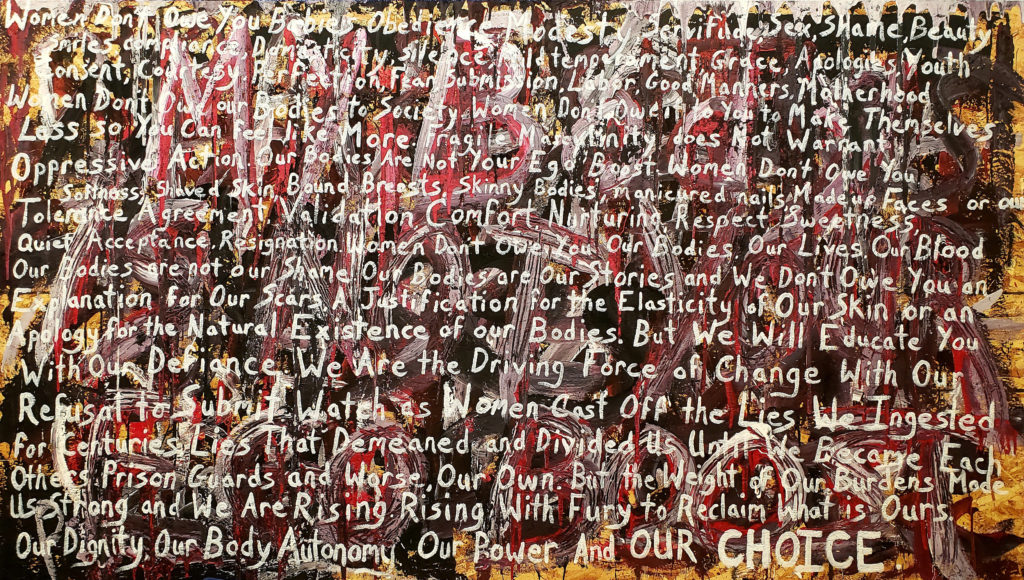 Women Don't Owe You Babies Obedience Modesty Servitude, Sex, Shame, Beauty
Smiles, compliance, Domesticity, Silence, Mild temperament, Grace, Apologies, Youth
Consent, Courtesy, Perfection, Fear, Submission, Labor, Good Manners, Motherhood
Women Dont Owe our Bodies to Society. Women Don't Owe it to You to Make Themselves
Less so You Can feel like More. Fragile Masculinity does Not Warrant
Oppressive Action. Our Bodies Are Not Your Ego Boost. Women Don't Owe You
Softness, Shaved Skin, Bound Breasts, Skinny Bodies, manicured nails, Made up Faces or our
Tolerance Agreement Validation Comfort Nurturing Respect Sweetness,
Quiet Acceptance, Resignation. Women Dont Owe You Our Bodies, Our Lives, Our Blood
Our Bodies are not our Shame. Our Bodies are Our Stories and We Don't Owe You an
Explanation for Our Scars, A Justification for the Elasticity of Our Skin or an
Apology for the Natural Existence of our Bodies. But We Will Educate You
With Our Defiance. We Are the Driving Force of Change With Our
Refusal to Submit. Watch as Women Cast Off the Lies We Ingested
for Centuries, Lies That Demeaned and Divided Us Until We Became Each
Others Prison Guards and Worse, Our Own. But the Weight of Our Burdens Made
Us Strong and We Are Rising, Rising With Fury to Reclaim What is Ours,
Our Dignity, Our Body Autonomy Our Power And OUR CHOICE.